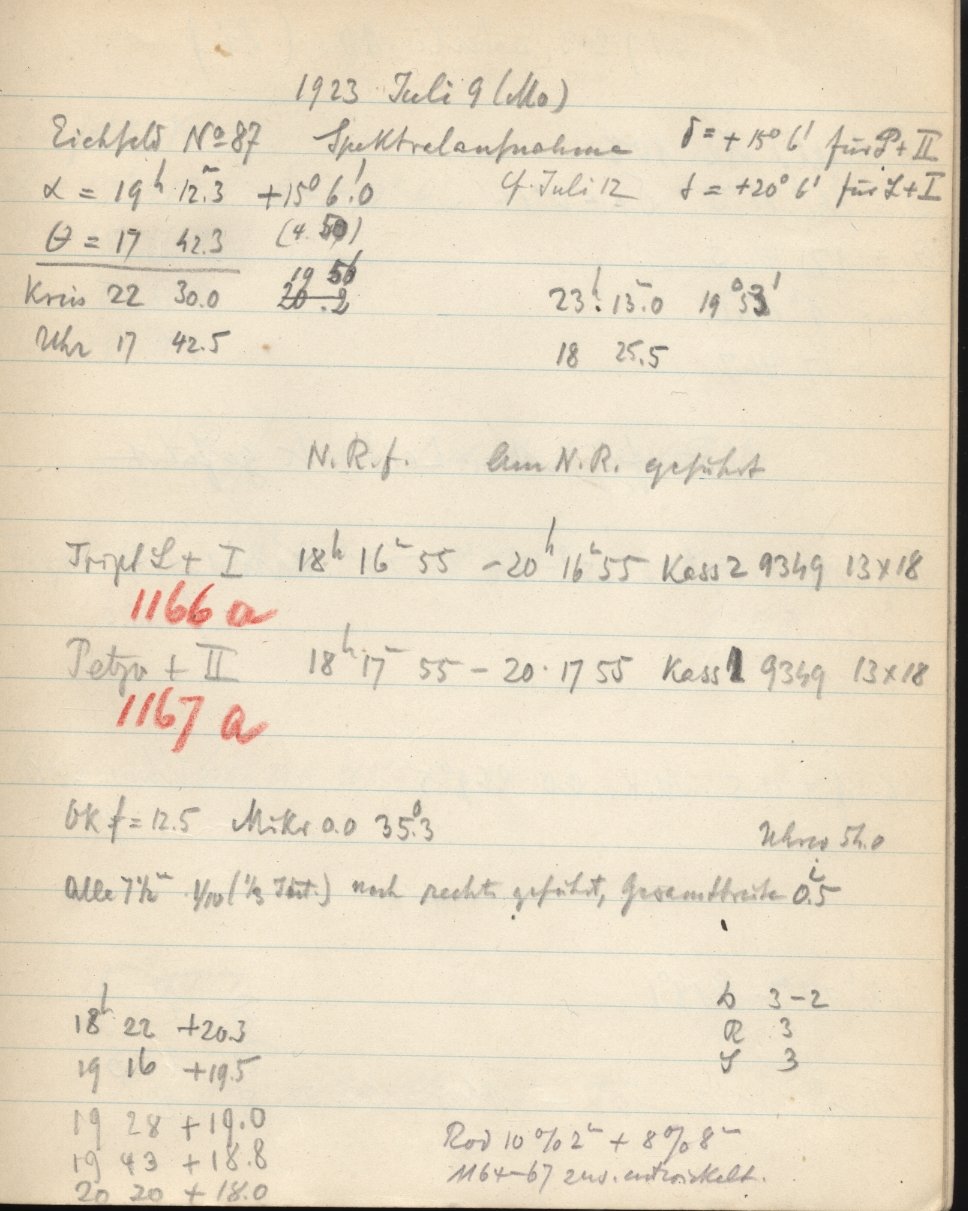 1923 Juli 9 (Mo)
Eichfeld No 87 Spektralaufnahme δ = +15° 6' für P + II
α = 19h 12m.3 +15° 6'.0 cf. Juli 12 δ = +20° 6' für L + I
θ = 17 42.3 (4 50)
19 56
Kreis 22 30.0 20.2 23h 15m.0 19° 53'
Uhr 17 42.5 18 25.5
N.R.f. Am N.R. geführt
Tripl L + I 18h 16m 55 – 20h 16m 55 Kass 2 9349 13x18
1166 a
Petzv + II 18h 17m 55 – 20 17 55 Kass 1 9349 13x18
1167 a
OK f = 12.5 Mikr 0.0 35°.3 54.0
Alle 7½m 1/10 (1/3 Int.) nach rechts geführt, Gesamtbreite 0.5
18h 22 +20.3 D 3-2
19 16 +19.5 R 3
S 3
19 28 +19.0
19 43 +18.8
20 20 +18.0
Rod 10% 2m + 8% 8m
1164–67 zus. entwickelt.